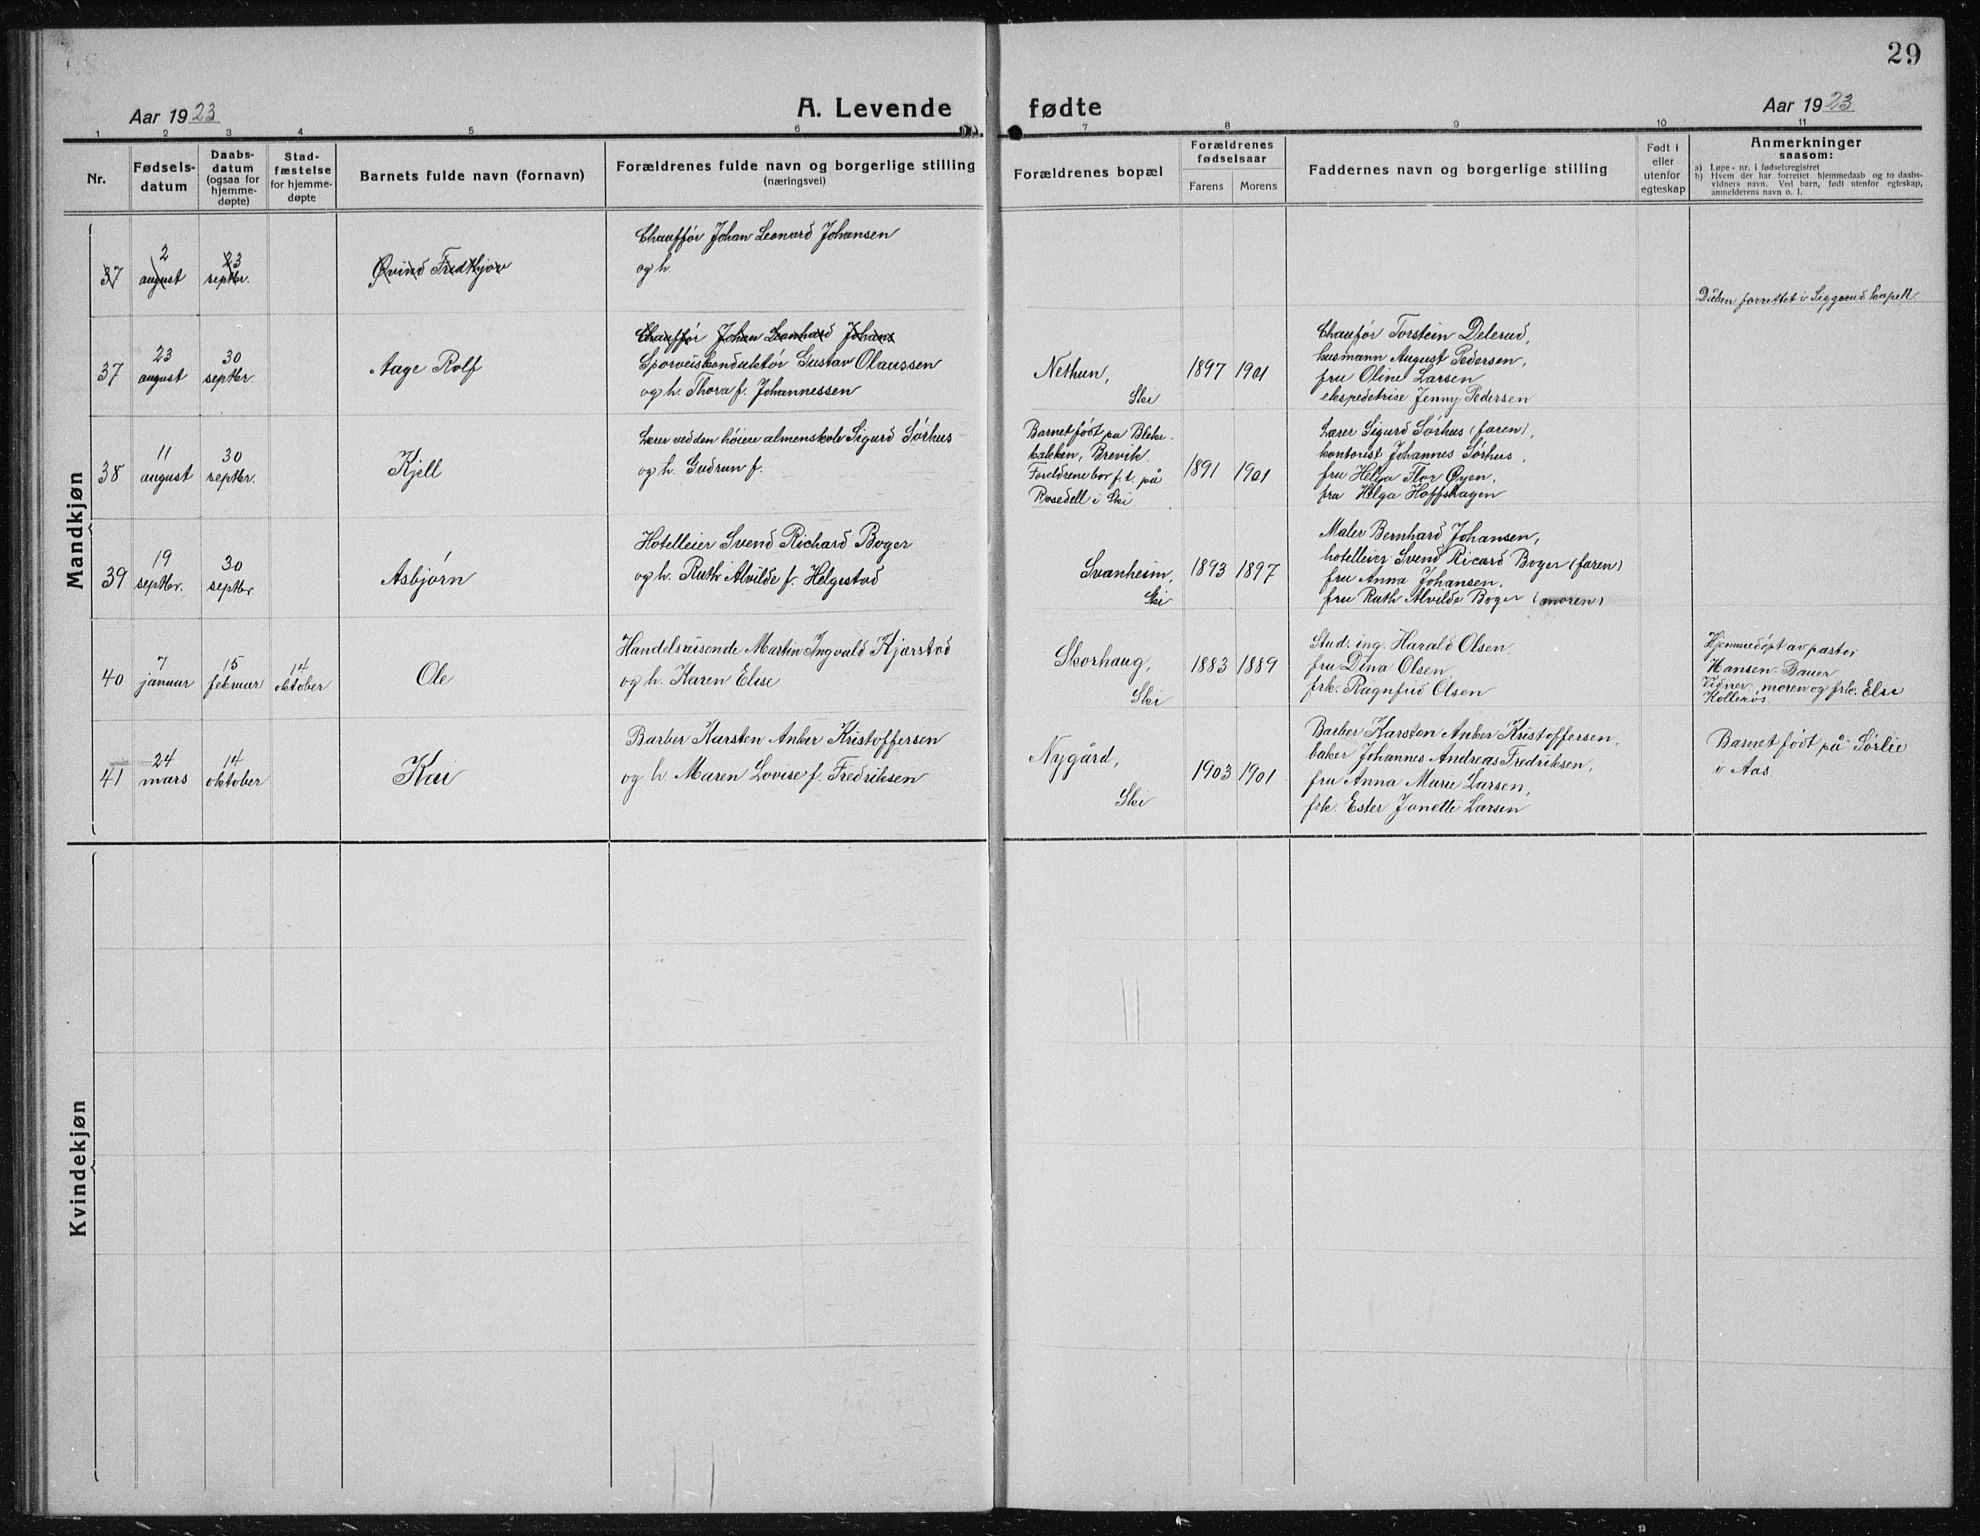 29
Aar 1923
A. Levende fødte
Aar 1923
1 2 3 4 5 6 7 8 9 10 11
Nr.
Fødselsdatum
Daabsdatum (ogsaa for hjemmedøpte)
Stadfæstelse for hjemmedøpte
Barnets fulde navn (fornavn)
Forældrenes fulde navn og borgerlige stilling
(næringsvei)
Forældrenes bopæl
Forældrenes fødselsaar
Farens Morens
Faddernes navn og borgerlige stilling
Født i eller utenfor egteskap
Anmerkninger
saasom:
a) Løpe-nr. i fødselsregistret
b) Hvem der har forrettet hjemmedaab og to daabs-
vidners navn. Ved barn, født utenfor egteskap,
anmelderens navn o. l.
Mandkjøn
37
2 august
23 septbr.
Øvind Fredkjov
Chauffør Johan Leonard Johansen
og h.
Dåben forrettet i Siggerud kapell
37
23 august
30 septbr.
Aage Rolf
Chauffør Johan Leonhard Johans
Sporveiskonduktør Gustav Olaussen
og h. Thora f. Johannessen
Nethun,
Ski
1897 1901
Chaufør Torstein Delerud,
husmann August Pedersen,
fru Oline Larsen
ekspedetrise Jenny Pedersen
38
11 august
30 septbr.
Kjell
Lærer ved den høiere almenskole Sigurd Sørhus
og h. Gudrun f.
Barnet født på Bleke-
bakken, Brevik.
Foreldrene bor f. t. på
Rosedell i Ski
1891 1901
Lærer Sigurd Sørhus (faren),
kontorist Johannes Sørhus,
fru Helga Flor Øyen,
fru Helga Hoffshagen
39
19 septbr.
30 septbr.
Asbjørn
Hotelleier Svend Richard Boger
og h. Ruth Alvilde f. Helgestad
Svanheim,
Ski
1893 1897
Maler Bernhard Johansen,
hotelleier Svend Ricard Boger (faren)
fru Anna Johansen,
fru Ruth Alvilde Boger (moren)
40
7 januar
15 februar
14 oktober
Ole
Handelsreisende Martin Ingvald Kjærstad
og h. Karen Elise
Skorhaug,
Ski
1883 1889
Stud. ing. Harald Olsen
fru Dina Olsen
frk. Ragnfrid Olsen
Hjemmedøpt av pastor
Hansen-Bauer
Vidner, moren og frk. Elsi
Kollerøs
41
24 mars
14 oktober
Kai
Barber Karsten Anker Kristoffersen
og h. Maren Lovise f. Fredriksen
Nygård,
Ski
1903 1901
Barber Karsten Anker Kristoffersen,
baker Johannes Andreas Fredriksen,
fru Anna Marie Larsen,
frk. Ester Jonette Larsen
Barnet født på Sørlie
i Aas.
Kvindekjøn